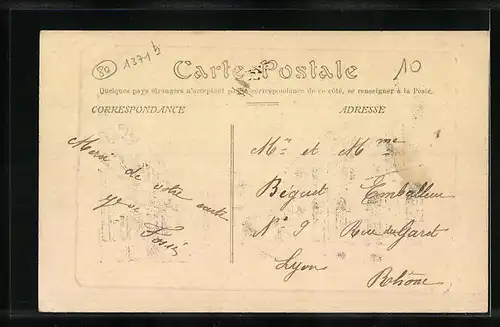 80
1371 b
10
Carte Postale
Quelques pays étrangers n'acceptant pas la correspondance de ce côté, se renseigner à la Poste.
CORRESPONDANCE
ADRESSE
Merci de votre carte
Mr et Mme
Béguet Emballeur
No 9 Rue du Garet
Lyon
Rhône